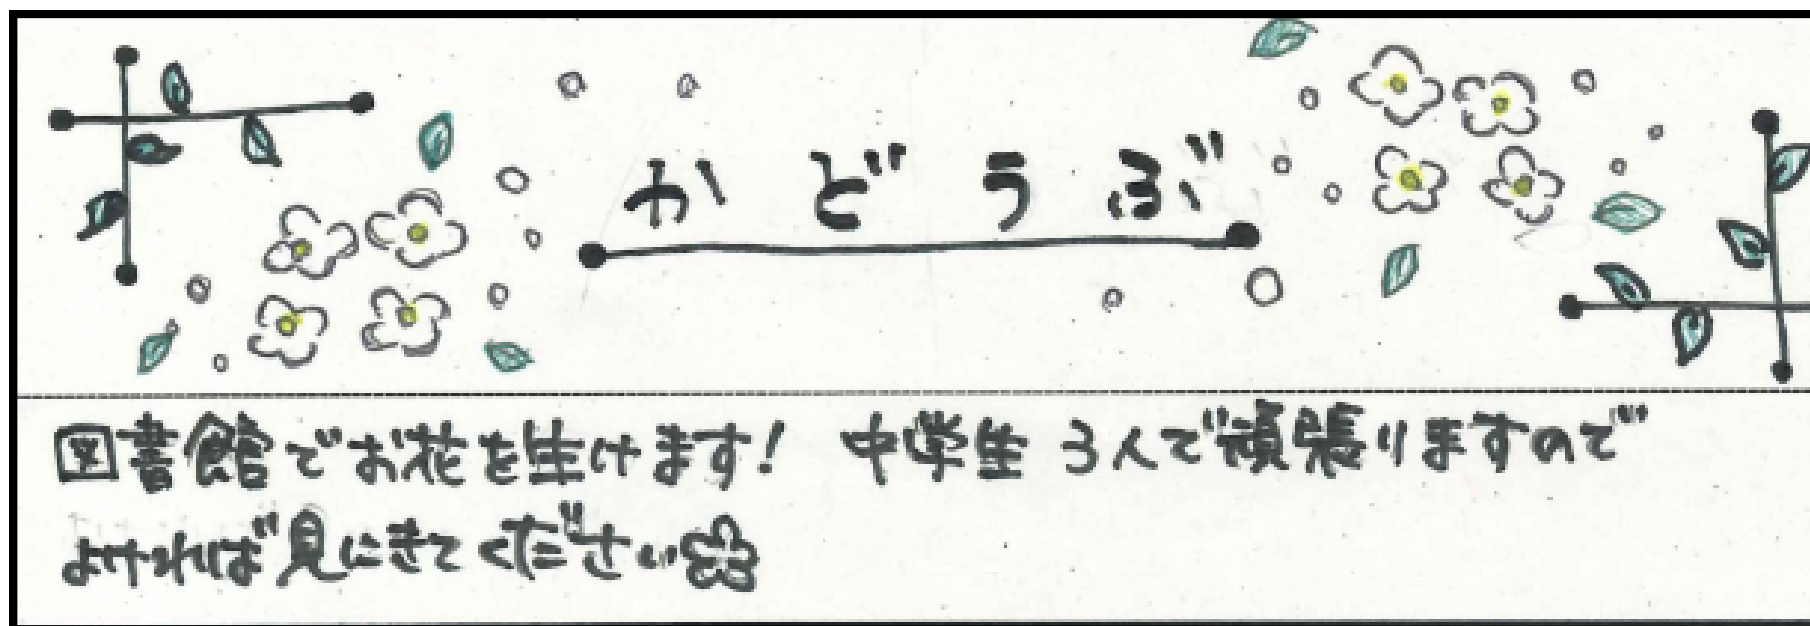 かどうぶ
図書館でお花を生けます! 中学生 3人で頑張りますので
よければ見にきてください